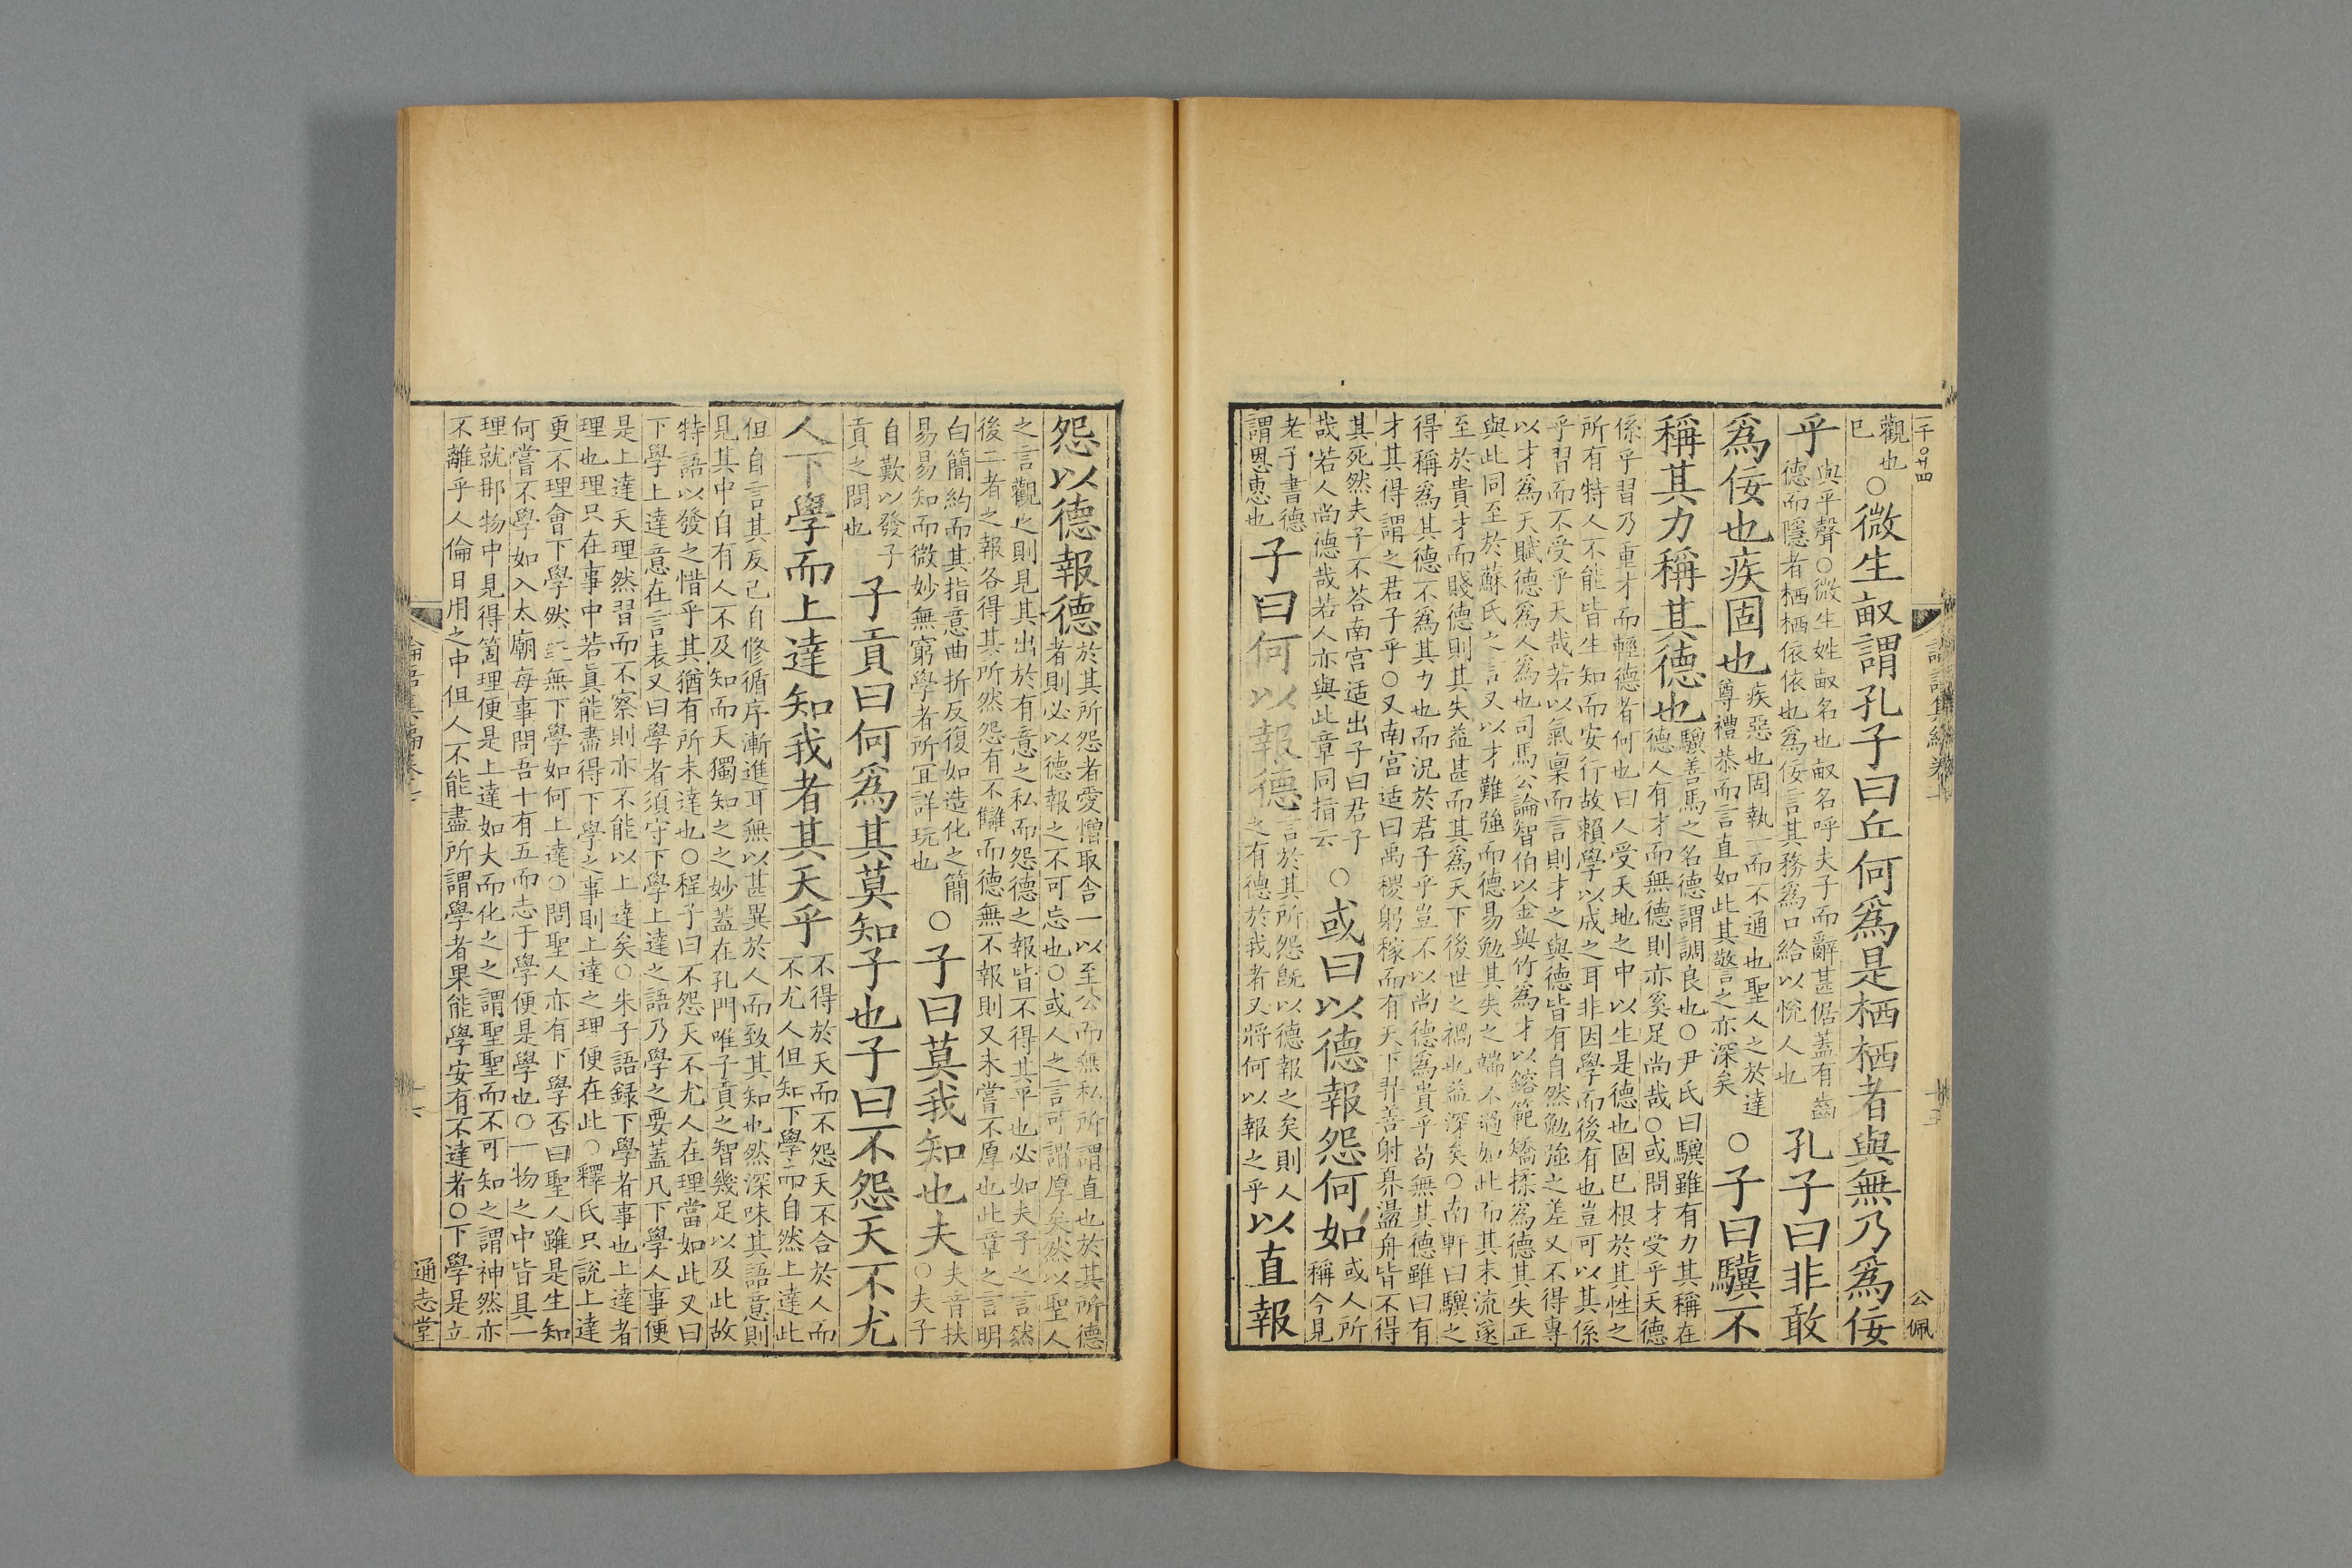 一千〇廿四
公佩
觀也
已
○微生畝謂孔子曰丘何爲是栖栖者與無乃爲佞
乎
與平聲○微生姓畝名也畝名呼夫子而辭甚倨蓋有齒
德而隱者栖栖依依也爲佞言其務爲口給以悅人也
孔子曰非敢
爲佞也疾固也
疾惡也固執一而不通也聖人之於達
尊禮恭而言直如此其警之亦深矣
○子曰驥不
稱其力稱其德也
驥善馬之名德謂調良也○尹氏曰驥雖有力其稱在
德人有才而無德則亦奚足尚哉○或問才受乎天德
係乎習乃重才而輕德者何也曰人受天地之中以生是德也固已根於其性之
所有特人不能皆生知而安行故賴學以成之耳非因學而後有也豈可以其係
乎習而不受乎天哉若以氣稟而言則才之與德皆有自然勉強之差又不得專
以才爲天賦德爲人爲也司馬公論智伯以金與竹爲才以鎔範矯揉爲德其失正
與此同至於蘇氏之言又以才難強而德易勉其失之端不過如此而其末流遂
至於貴才而賤德則其失益甚而其爲天下後世之禍也益深矣○南軒曰驥之
得稱爲其德不爲其力也而況於君子乎豈不以尚德爲貴乎苟無其德雖曰有
才其得謂之君子乎○又南宮适曰禹稷躬稼而有天下羿善射奡盪舟皆不得
其死然夫子不荅南宮适出子曰君子
哉若人尚德哉若人亦與此章同指云
○或曰以德報怨何如
或人所
稱今見
老子書德
謂恩惠也
子曰何以報德
言於其所怨既以德報之矣則人
之有德於我者又將何以報之乎
以直報
怨以德報德
於其所怨者愛憎取舎一以至公而無私所謂直也於其所德
者則必以德報之不可忘也○或人之言可謂厚矣然以聖人
之言觀之則見其出於有意之私而怨德之報皆不得其平也必如夫子之言然
後二者之報各得其所然怨有不讎而德無不報則又未嘗不厚也此章之言明
白簡約而其指意曲折反復如造化之簡
易易知而微妙無窮學者所宜詳玩也
○子曰莫我知也夫
夫音扶
○夫子
自歎以發子
貢之問也
子貢曰何爲其莫知子也子曰不怨天不尤
人下學而上達知我者其天乎
不得於天而不怨天不合於人而
不尤人但知下學而自然上達此
但自言其反己自修循序漸進耳無以甚異於人而致其知也然深味其語意則
見其中自有人不及知而天獨知之之妙蓋在孔門唯子貢之智幾足以及此故
特語以發之惜乎其猶有所未達也○程子曰不怨天不尤人在理當如此又曰
下學上達意在言表又曰學者須守下學上達之語乃學之要蓋凡下學人事便
是上達天理然習而不察則亦不能以上達矣○朱子語録下學者事也上達者
理也理只在事中若眞能盡得下學之事則上達之理便在此○釋氏只說上達
更不理會下學然無下學如何上達○問聖人亦有下學否曰聖人雖是生知
何嘗不學如入太廟每事問吾十有五而志于學便是學也○一物之中皆具一
理就那物中見得箇理便是上達如大而化之之謂聖聖而不可知之謂神然亦
不離乎人倫日用之中但人不能盡所謂學者果能學安有不達者○下學是立
通志堂